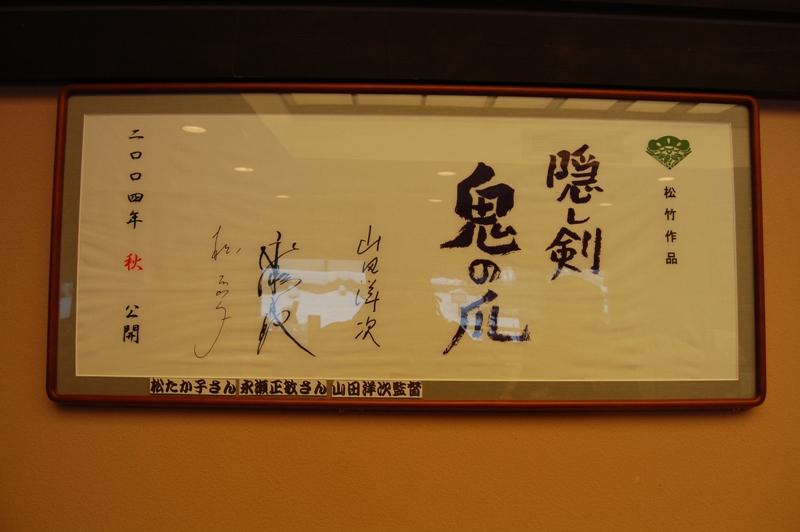 松竹作品
隠し剣
鬼の爪
山田洋次
二〇〇四年 秋 公開
松たか子さん 永瀬正敏さん 山田洋次監督